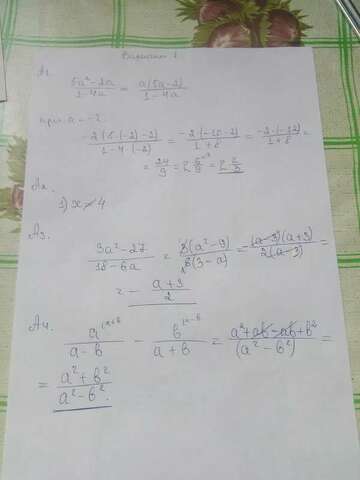 Вариант 1
А1.
5a² - 2a / 1 - 4a = a(5a - 2) / 1 - 4a
при a = -2
-2(5·(-2) - 2) / 1 - 4·(-2) = -2(-10 - 2) / 1 + 8 = -2·(-12) / 1 + 8 =
= 24/9 = 2 6/9 = 2 2/3
А2.
1) x ≠ 4
А3.
3a² - 27 / 18 - 6a = 3(a² - 9) / 6(3 - a) = -(a - 3)(a + 3) / 2(a - 3) =
= - a + 3 / 2
А4.
a^(a+b) / a - b - b^(a-b) / a + b = a² + ab - ab + b² / (a² - b²) =
= a² + b² / a² - b².